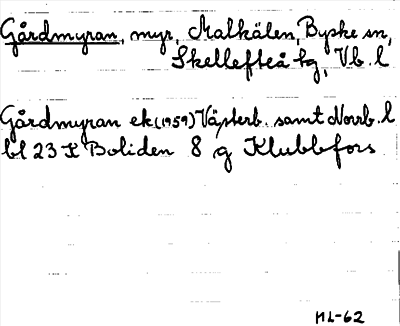 Gårdmyran, myr, Malkälen, Byske sn,
Skellefteå tg, Vb. l
Gårdmyran ek (1959) Västerb. samt Norrb. l
bl 23 K Boliden 8 g Klubbfors
ML-62